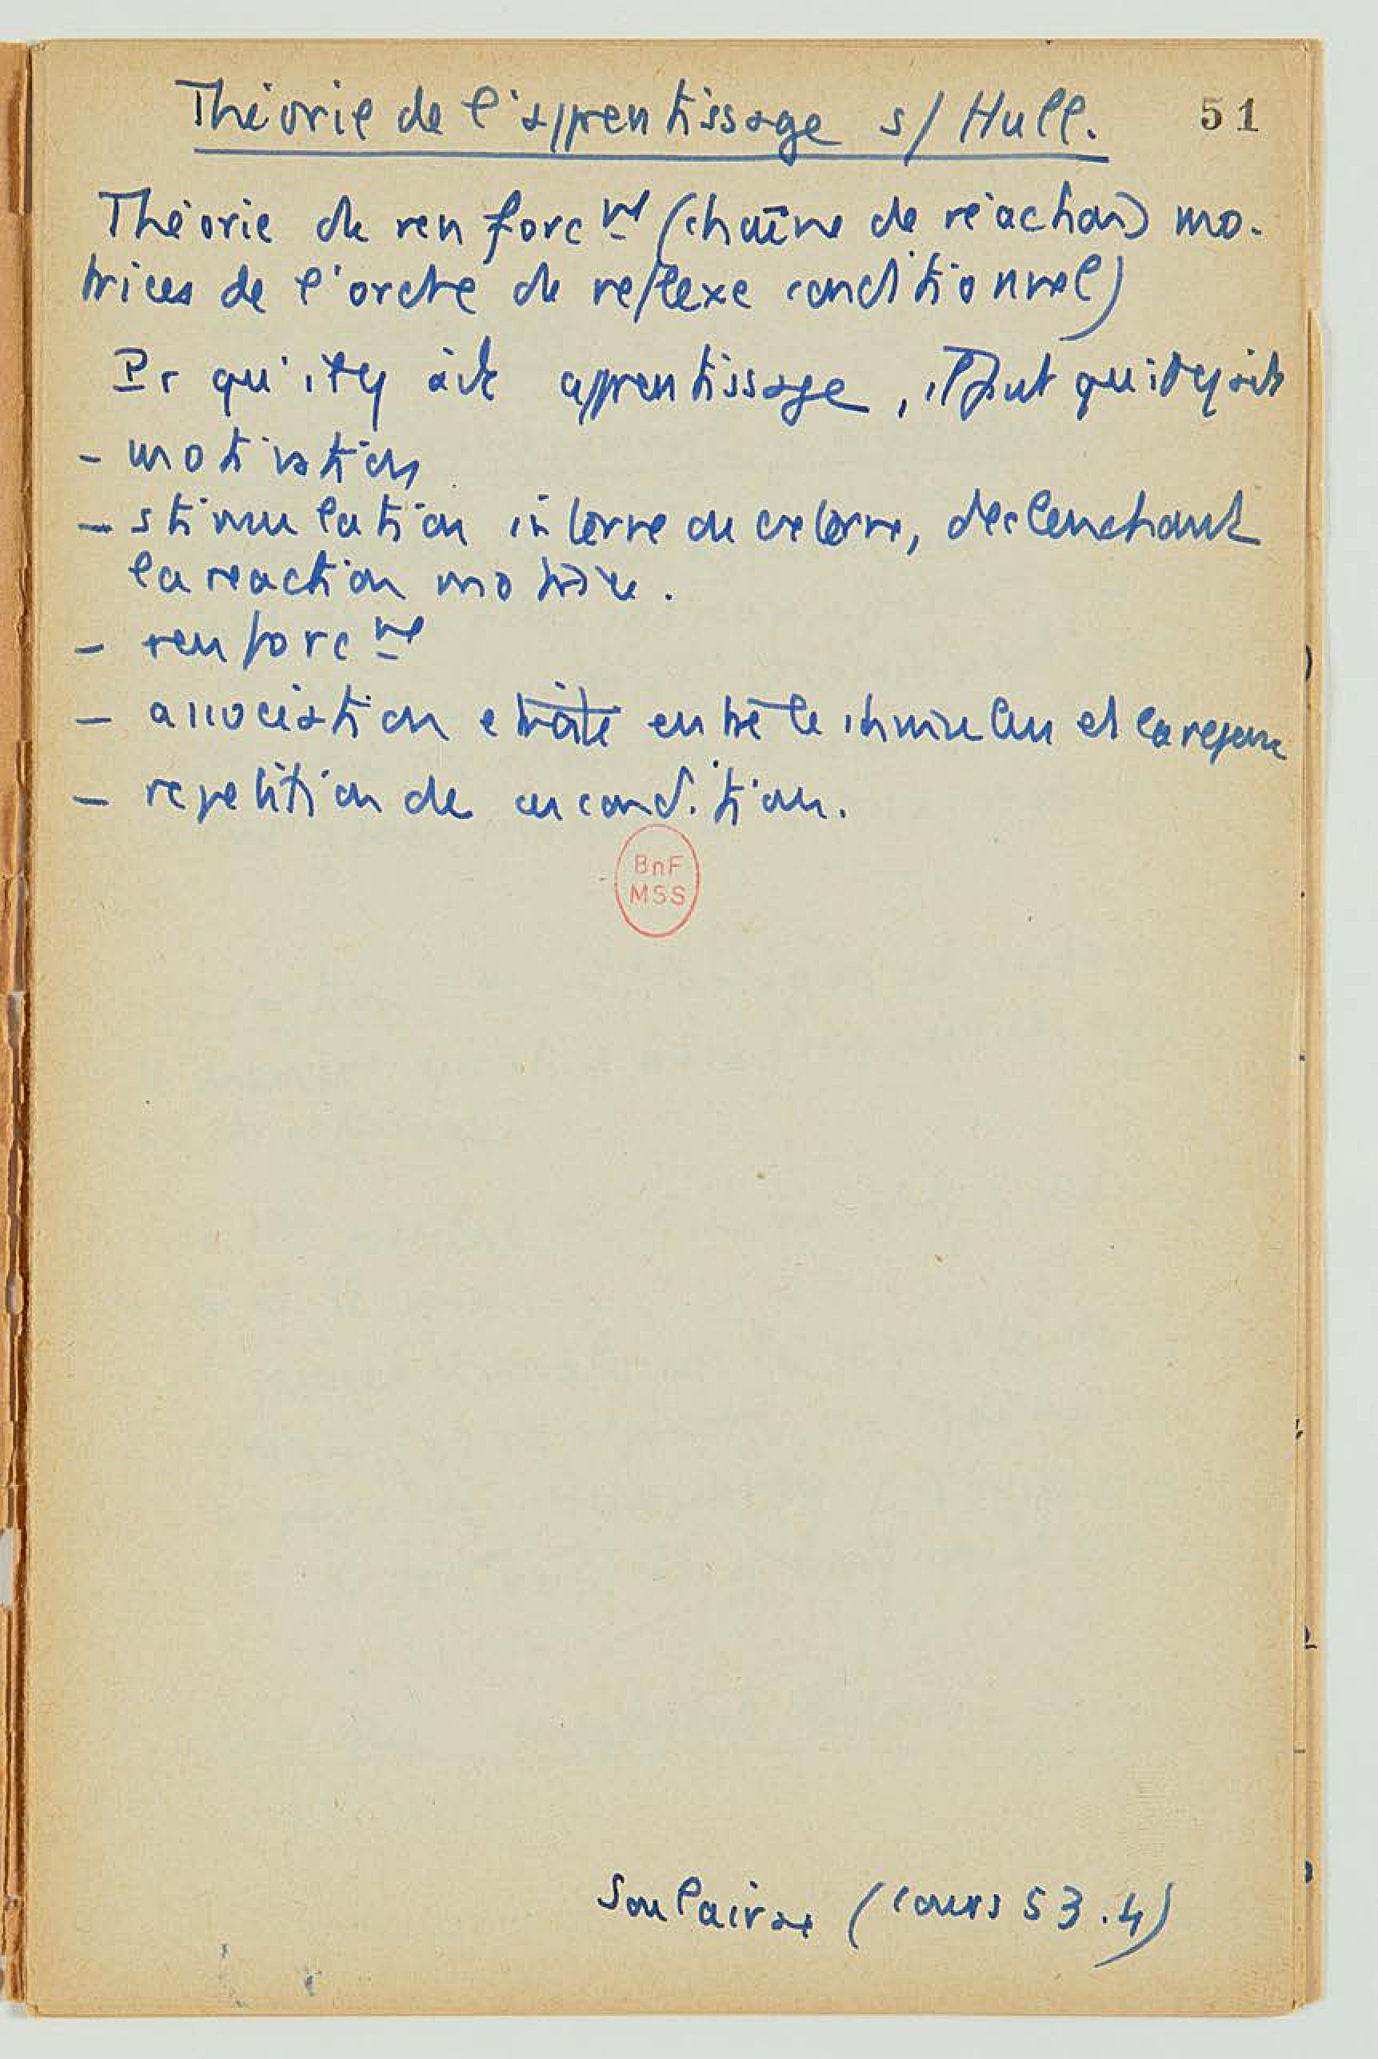 Théorie de l'apprentissage s/ Hull.
51
Théorie du renforcmt (chaîne de réactions mo-
trices de l'ordre du reflexe conditionnel)
Pr qu'il y ait apprentissage, il faut qu'il y ait
- motivation
- stimulation interne ou externe, declenchant
la reaction motrice.
- renforcmt
- association etroite entre le stimulus et la reponse
- repetition de ces conditions.
BnF
MSS
Soulairac (cours 53.4)